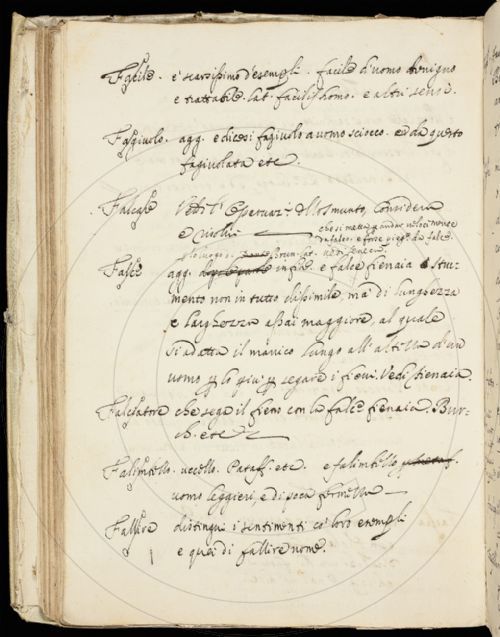 Facile. e' scarsissimo d'esempli. facile d'uomo benigno
e trattabile. lat. facilis homo. e altri sensi.
Fagiuolo. agg. e dicesi fagiuolo a uomo sciocco. e da questo
fagiuolata etc.
Falcare Vedi l' considera
e
che si mette a andar
falce.
Falce
agg. infine. e falce fienaia stru-
mento non in tutto dissimile, ma di lunghezza
e larghezza assai maggiore, al quale
si adatta il manico lungo all'altezza d'un
uomo p lo più p segare i fieni. Vedi fienaia.
Falciatore che sega il fieno con la falce fienaia. Bur-
ch. etc
Falimbello. uccello. Pataff. etc. e falimbello
uomo leggieri, e di poca fermezza
Fallire distingui i sentimenti co' loro exempli
e quei di fallire nome.